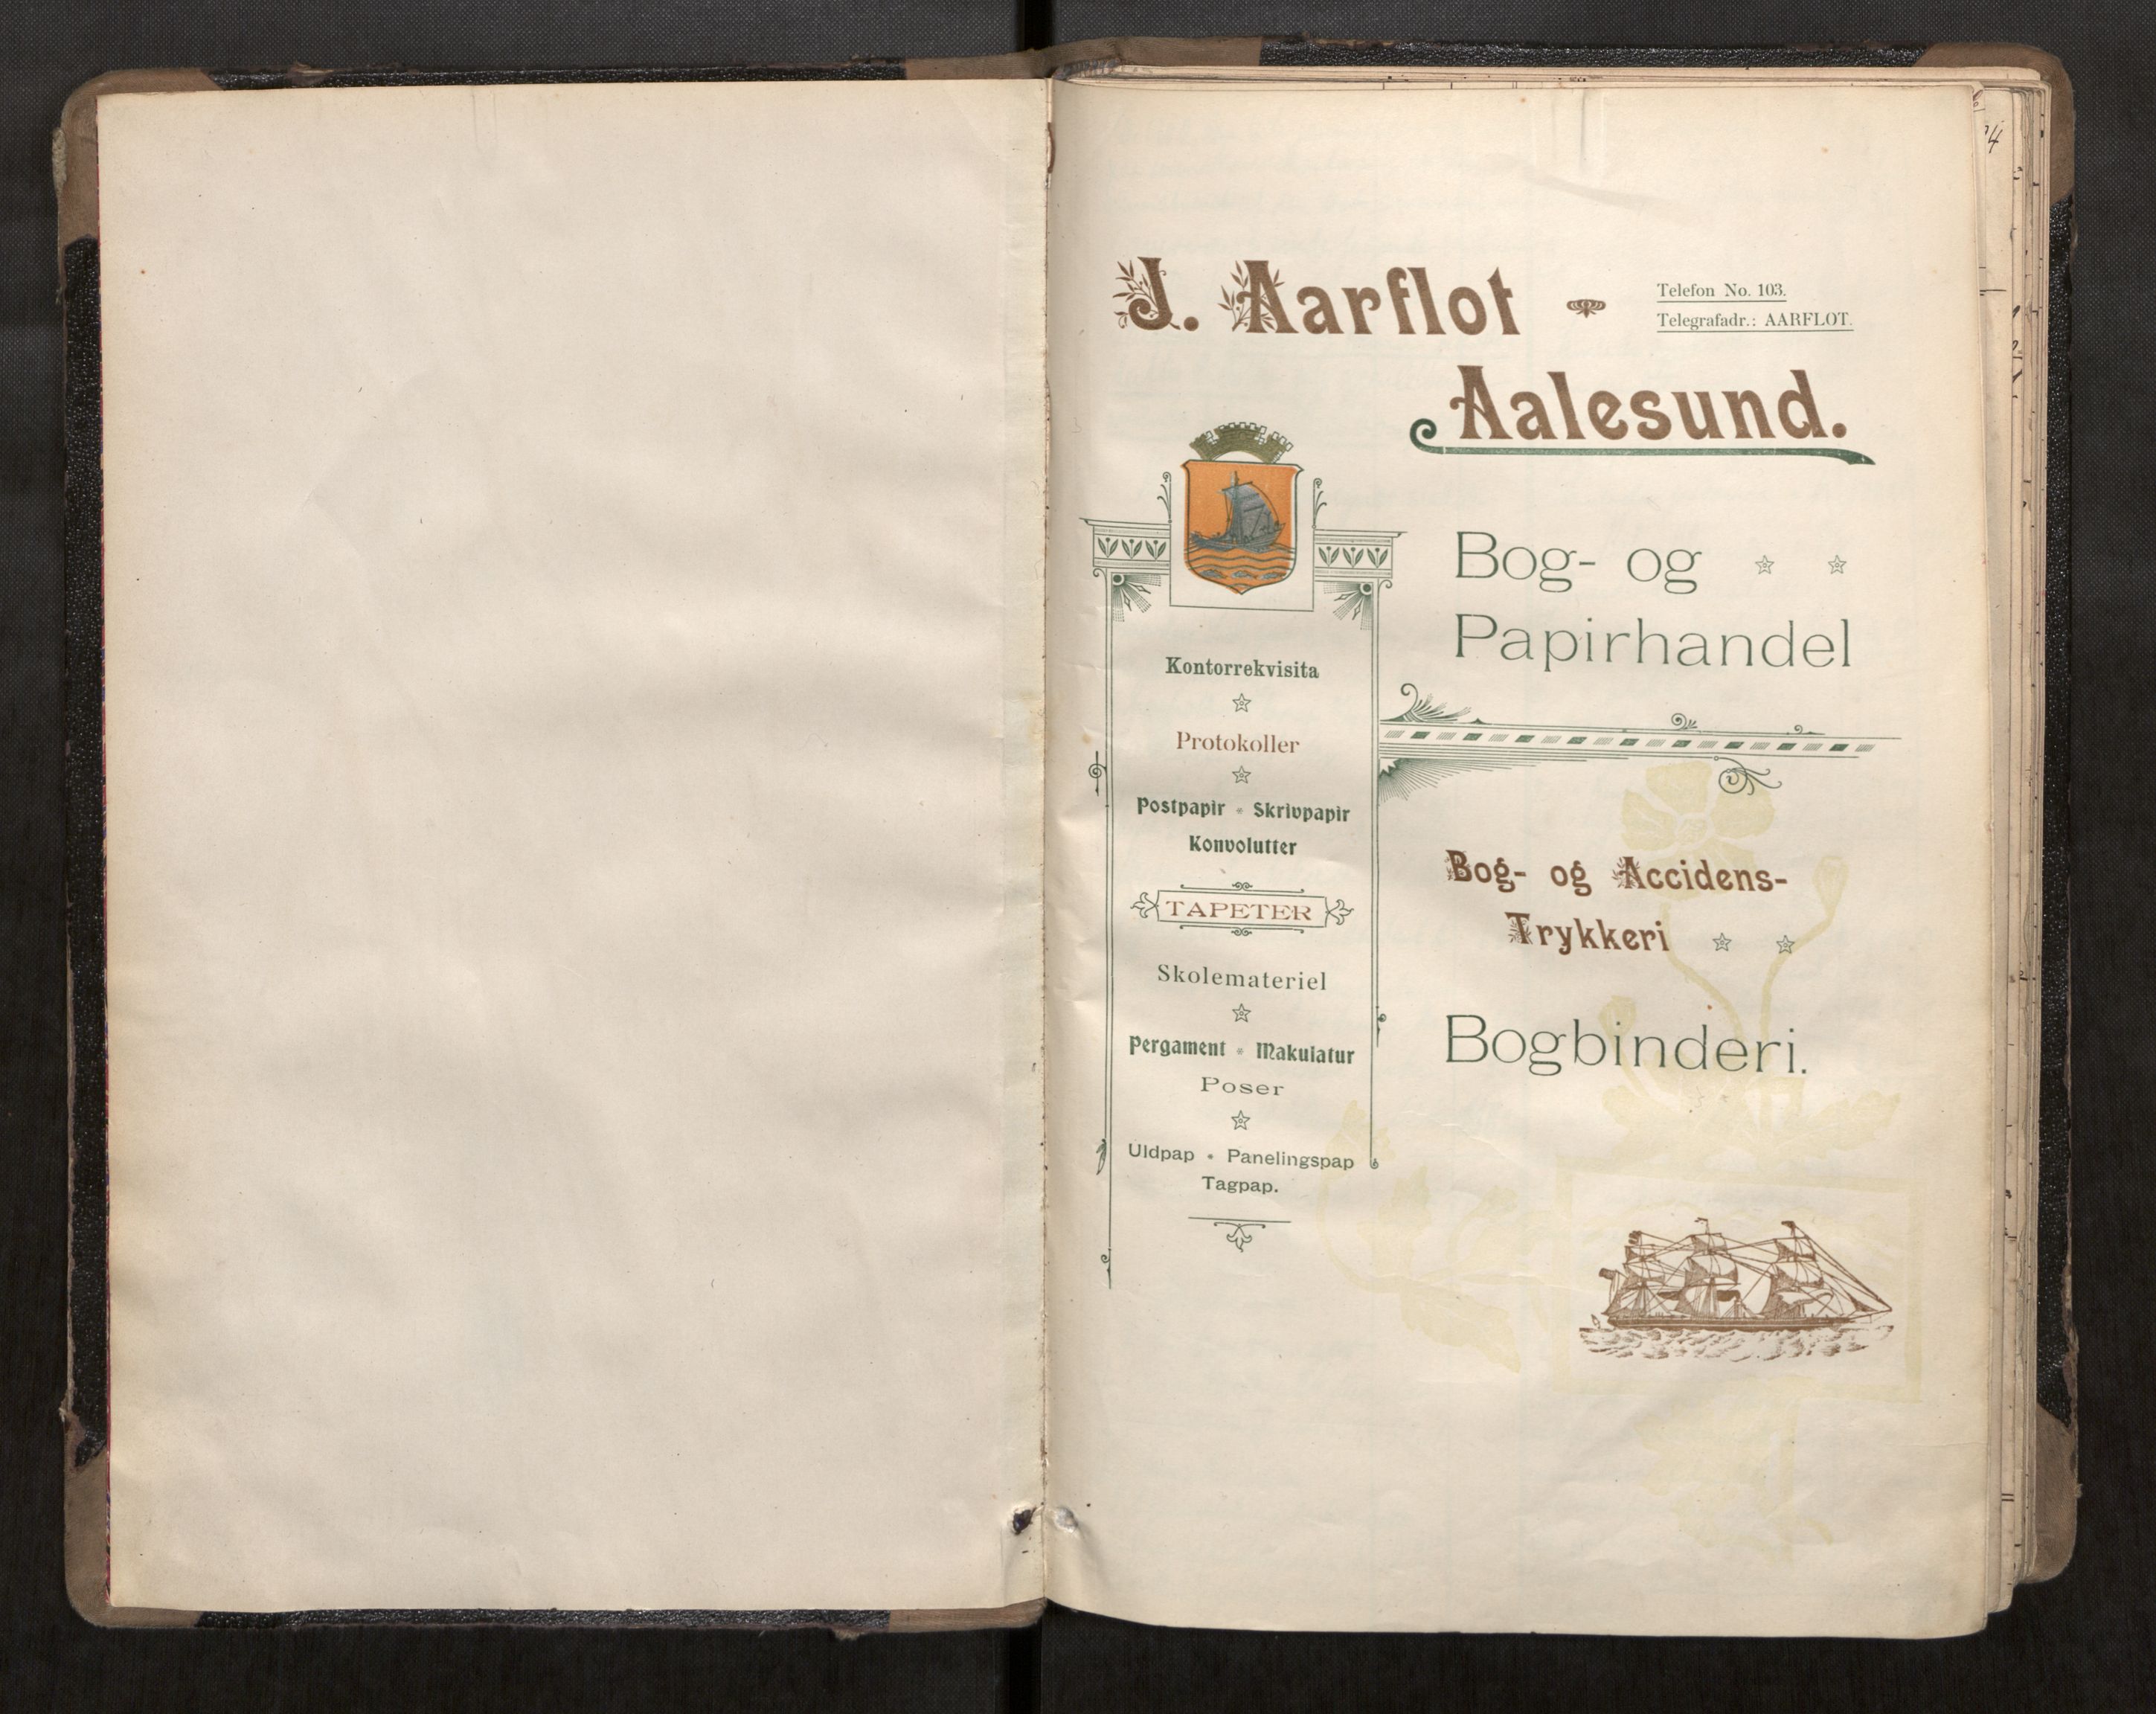 J. Aarflot
Telefon No. 103.
Telegrafadr.: AARFLOT.
Aalesund.
Bog- og
Papirhandel
Kontorrekvisita
Protokoller
Postpapir Skrivpapir
Konvolutter
TAPETER
Skolemateriel
Pergament Makulatur
Poser
Uldpap Panelingspap
Tagpap.
Bog- og Accidens-
Trykkeri
Bogbinderi.